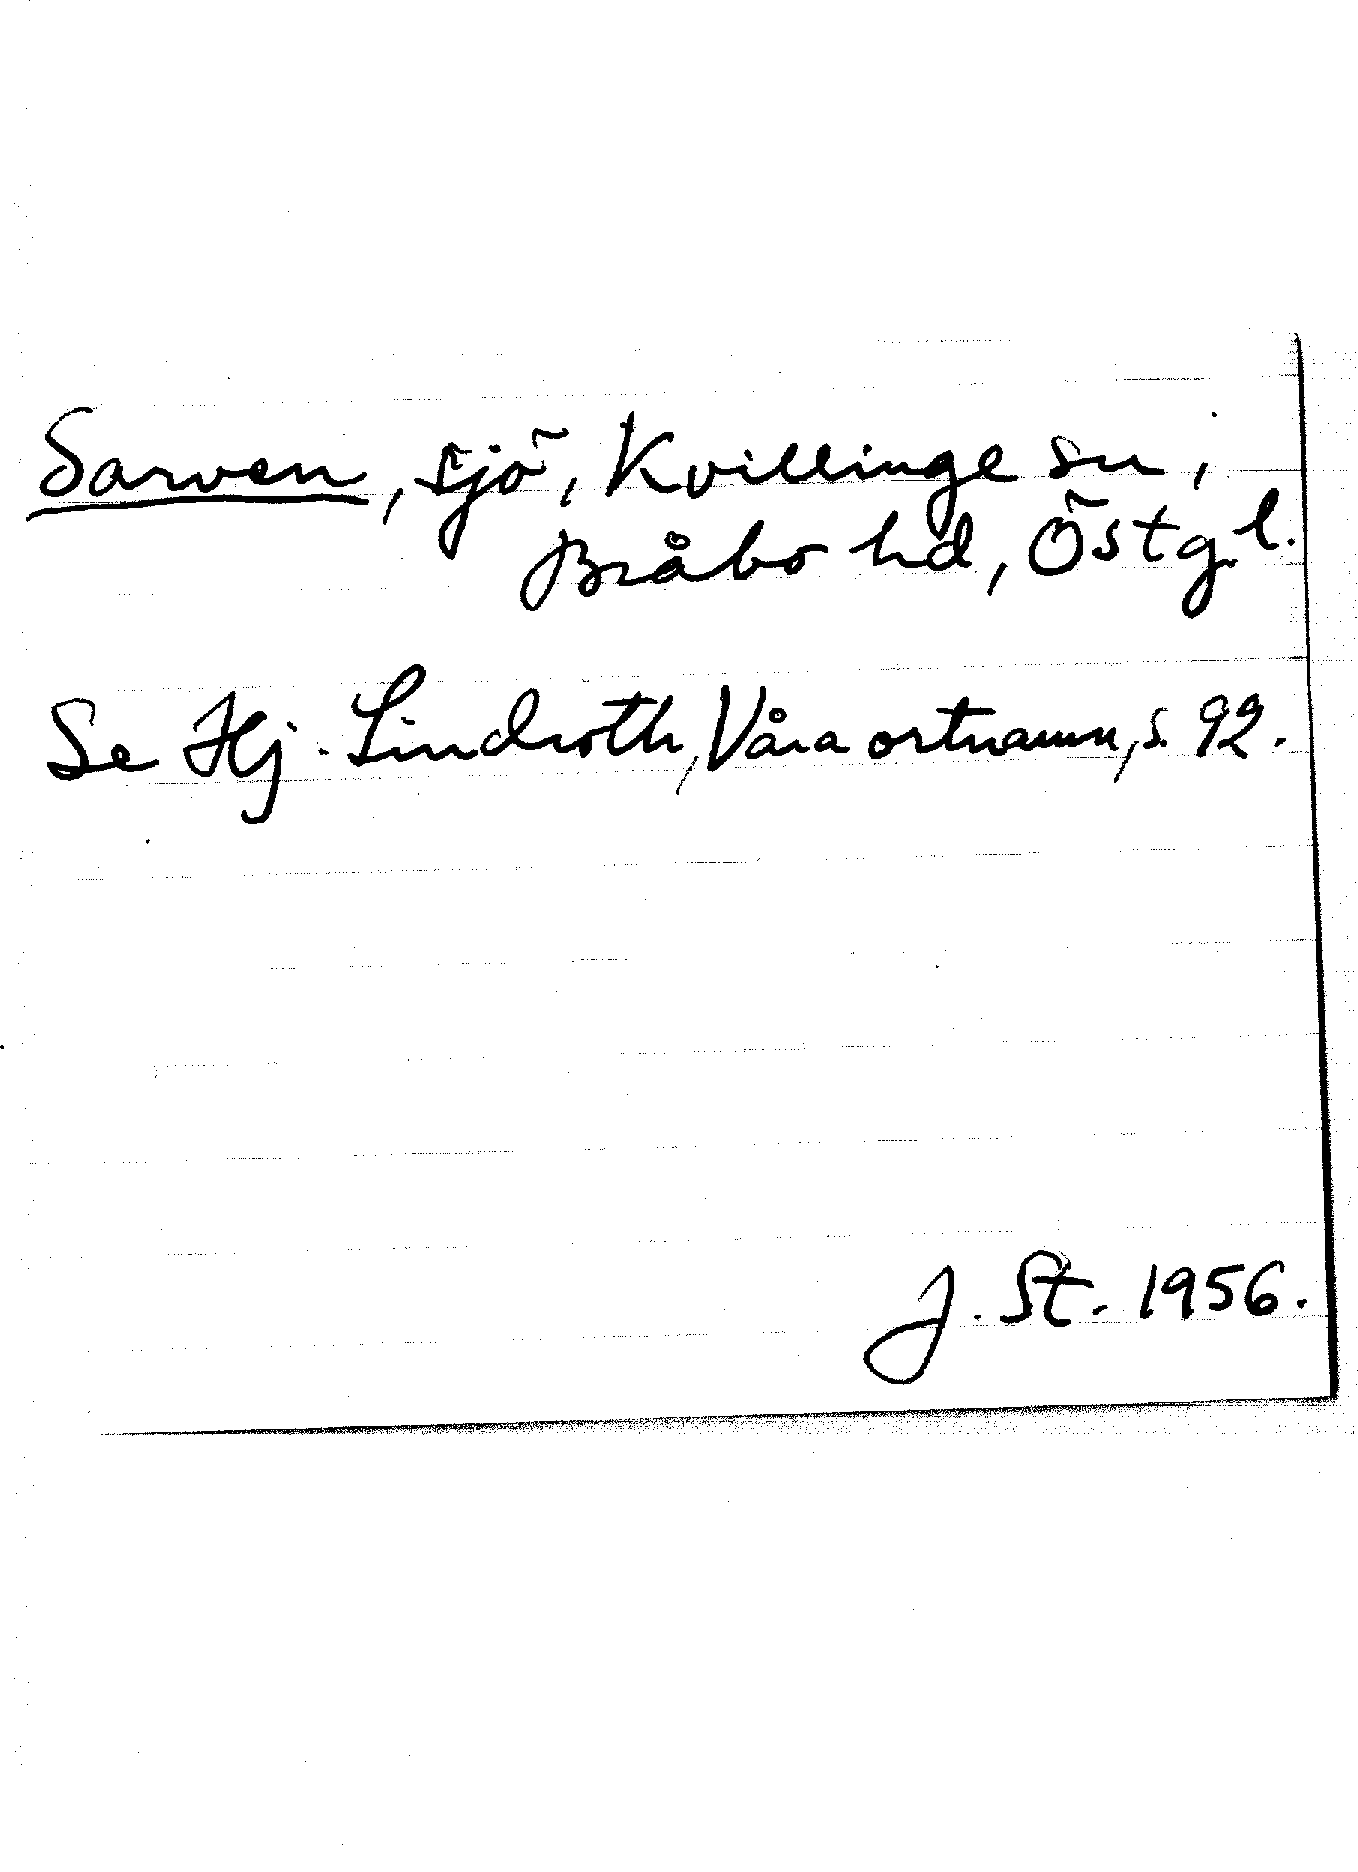 Sarven, sjö, Kvillinge sn,
Bråbo hd, Östg.l.
Se Hj. Lindroth, Våra ortnamn, s. 92.
J. St. 1956.